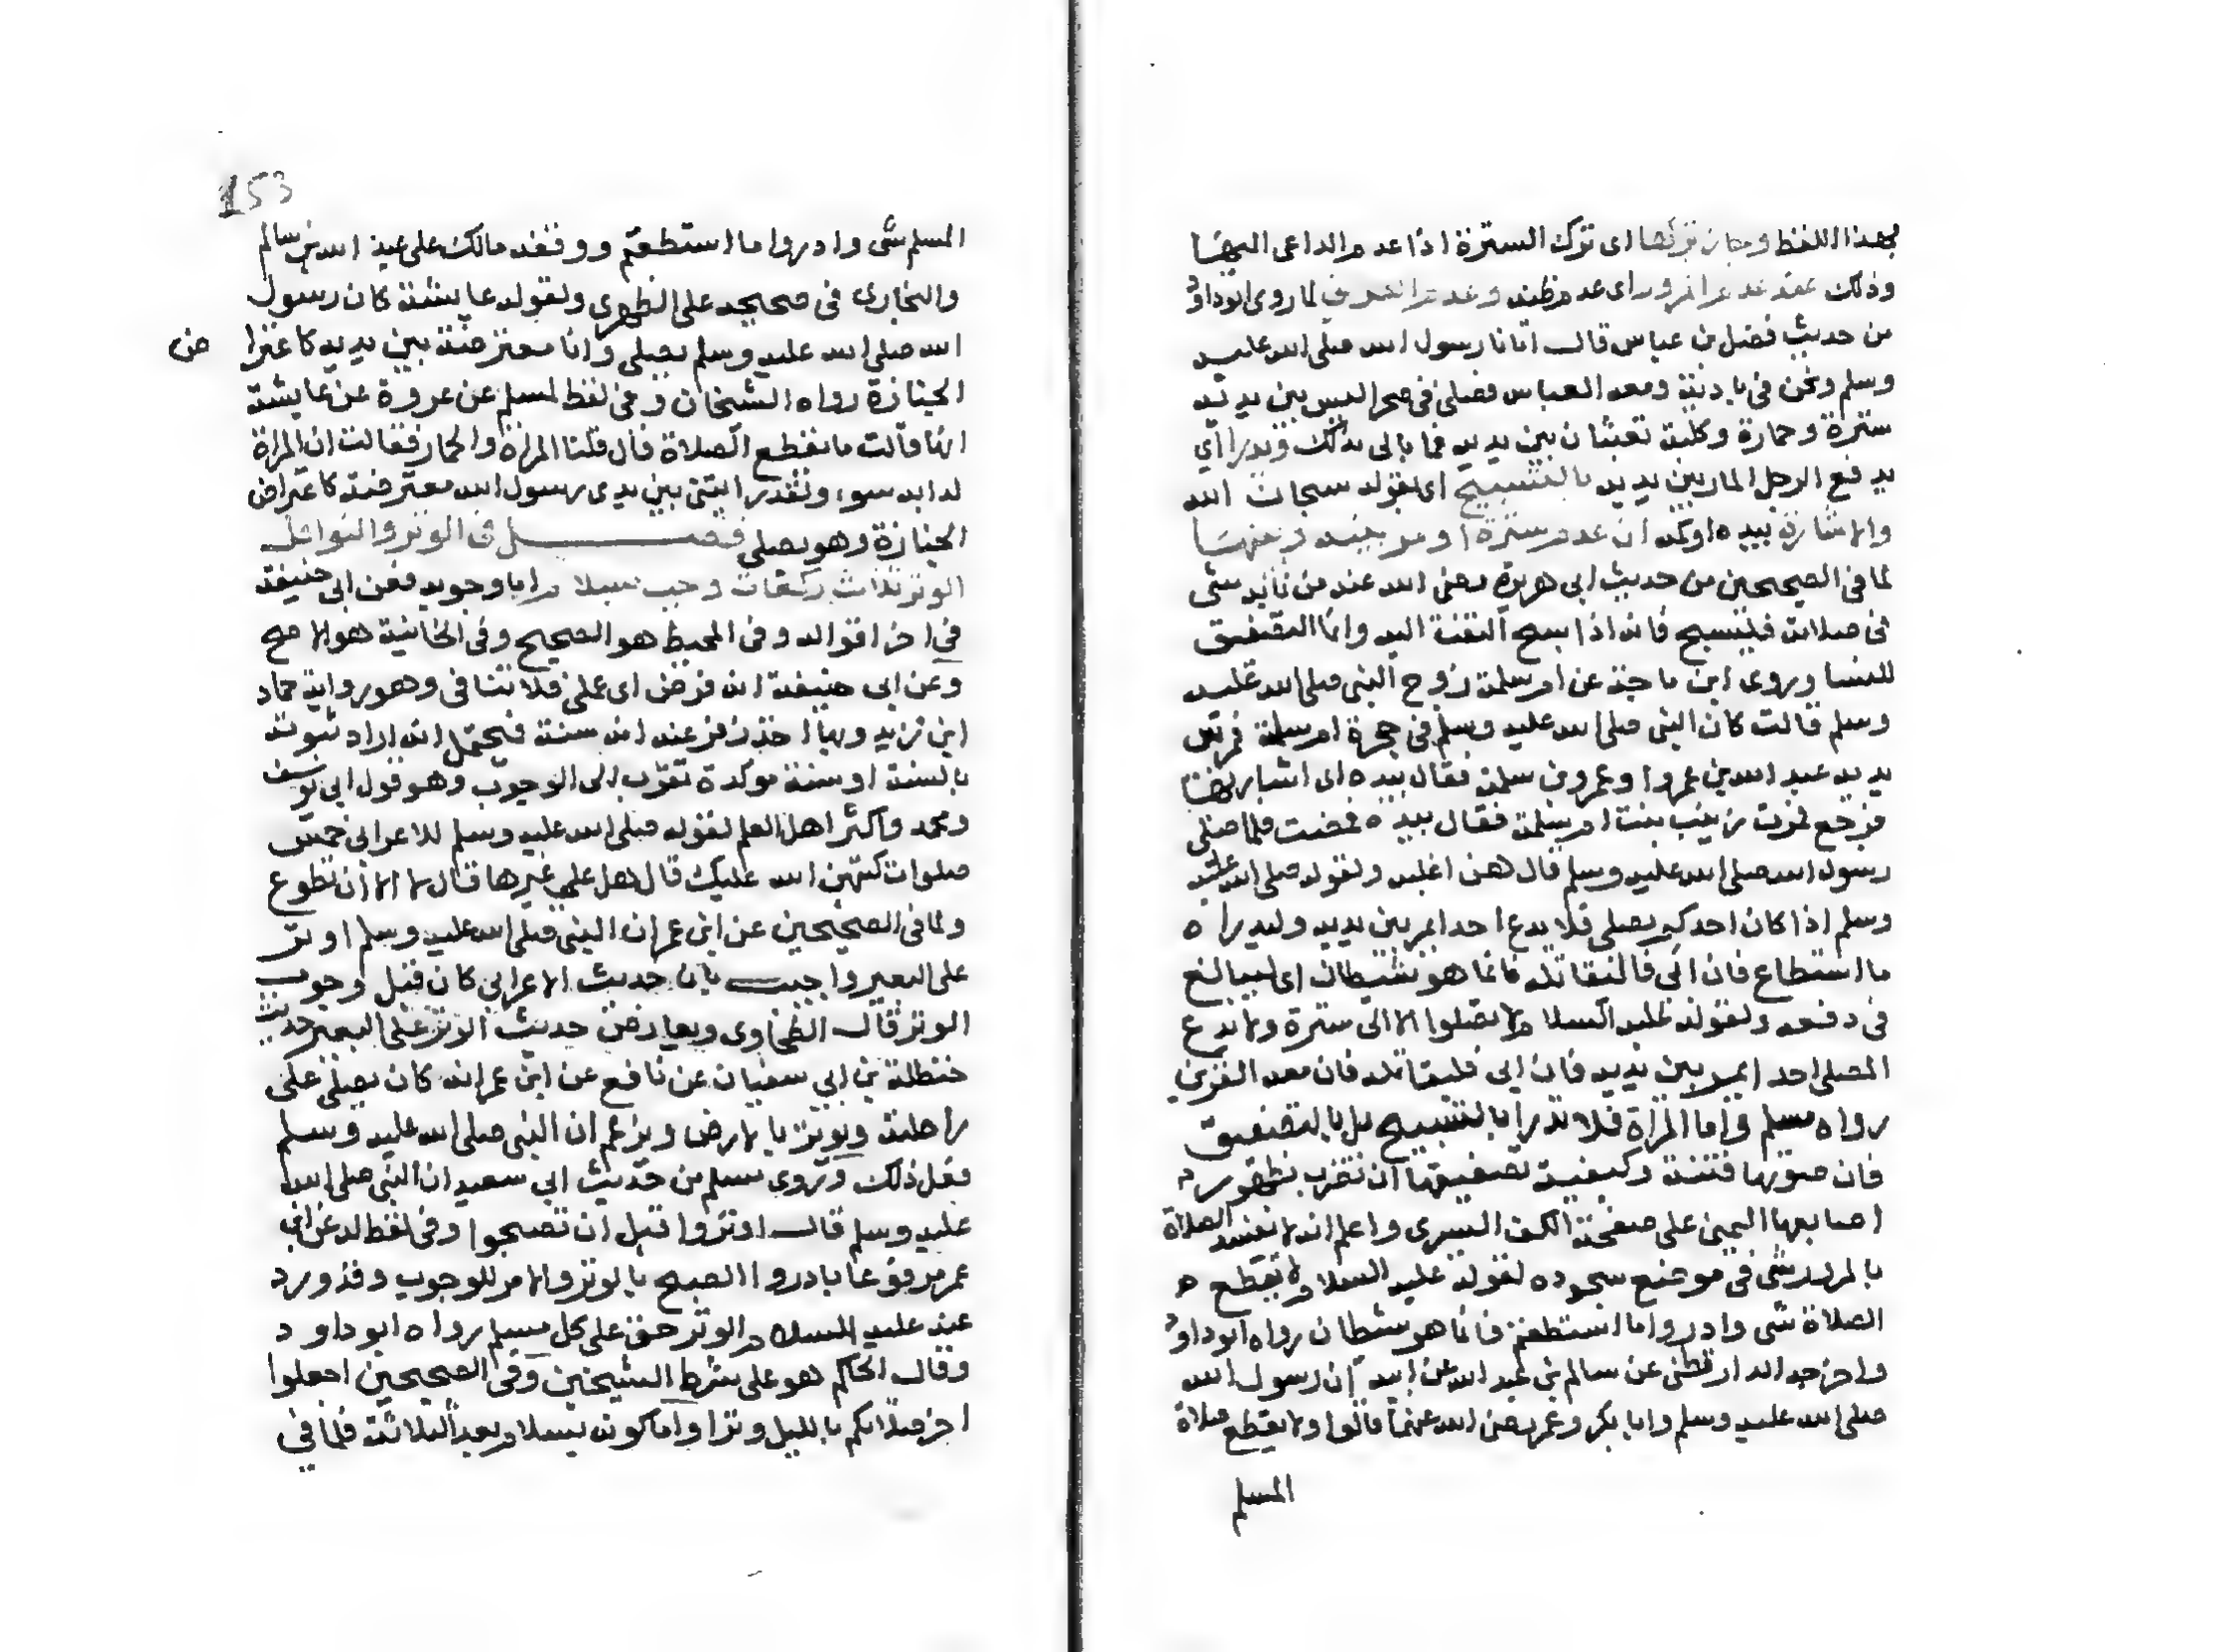 بهذا اللفظ وجاز تركها اى ترك السترة اذا عدم الداعى اليها
وذلك عند عدم المرور اى عدم ظنه وعدم الطريق لما روى ابو داود
من حديث فضل بن عباس قال اتانا رسول الله صلى الله عليه
وسلم ونحن فى بادية ومعه العباس فصلى فى صحرا ليس بين يديه
سترة وحمارة وكلبة تعبثان بين يديه فما بالى بذلك ويدرا اى
يدفع الرجل المار بين يديه بالتسبيح اى بقوله سبحان الله
والاشارة بيده اوكد ان عدم سترة او مر بينه وبينها
لما فى الصحيحين من حديث ابى هريرة رضى الله عنه من نابه شى
فى صلاته فليسبح فانه اذا سبح التفت اليه وانما التصفيق
للنسا وروى ابن ماجة عن ام سلمة زوج النبى صلى الله عليه
وسلم قالت كان النبى صلى الله عليه وسلم فى حجرة ام سلمة فمر بين
يديه عبد الله بن عمروا وعمر بن سلمة فقال بيده اى اشار بها
فرجع فمرت زينب بنت ام سلمة فقال بيده فمضت فلما صلى
رسول الله صلى الله عليه وسلم قال هن اغلب ولقوله صلى الله عليه
وسلم اذا كان احدكم يصلى فلا يدع احدا يمر بين يديه وليدراه
ما استطاع فان ابى فاليقاتله فانما هو شيطان اى ليبالغ
فى دفعه ولقوله عليه السلام لا تصلوا الا الى سترة ولا يدع
المصلى احدا يمر بين يديه فان ابى فليقاتله فان معه القرين
رواه مسلم واما المراة فلا تدرا بالتسبيح بل بالتصفيق
فان صوتها فتنة وكيفية تصفيقها ان تضرب بظهور
اصابعها اليمنى على صفحة الكف اليسرى واعلم انه لا تفسد الصلاة
بالمرور شى فى موضع سجوده لقوله عليه السلام لا يقطع
الصلاة شى وادروا ما استطعتم فانما هو شيطان رواه ابو داود
واخرجه الدارقطنى عن سالم بن عبد الله عن ابيه ان رسول الله
صلى الله عليه وسلم وابا بكر وعمر رضى الله عنهما قالوا ولا يقطع صلاة
المسلم
153
المسلم شى وادروا ما استطعتم ووقفه مالك على عبد الله بن سالم
والبخارى فى صحيحه على الزهرى ولقوله عايشة كان رسول
الله صلى الله عليه وسلم يصلى وانا معترضة بين يديه كاعترا ض
الجنازة رواه الشيخان وفى لفظ لمسلم عن عروة عن عايشة
انها قالت ما يقطع الصلاة قال قلنا المراة والحمار فقالت ان المراة
لدابة سوء ولقد رايتنى بين يدى رسول الله معترضة كاعتراض
الجنازة وهو يصلى فصل فى الوتر والنوافل
الوتر ثلاث ركعات وجب بسلام اما وجوبه فعن ابى حنيفة
فى اخر اقواله وفى المحيط هو الصحيح وفى الخانية هو الاصح
وعن ابى حنيفة انه فرض اى عملى فلا تنافى وهو رواية حماد
ابن زيد وبها اخذ زفر وعنه انه سنة فيحتمل انه اراد ثبوته
بالسنة او سنة موكدة تقرب الى الوجوب وهو قول ابى يوسف
ومحمد واكثر اهل العلم لقوله صلى الله عليه وسلم للاعرابى خمس
صلوات كتبهن الله عليك قال هل على غيرها قال لا الا ان تطوع
ولما فى الصحيحين عن ابن عمر ان النبى صلى الله عليه وسلم اوتر
على البعير واجيب بان حديث الاعرابى كان قبل وجوب
الوتر قال الطحاوى ويعارض حديث الوتر على البعير حديث
حنظلة بن ابى سفيان عن نافع عن ابن عمر انه كان يصلى على
راحلته ويوتر بالارض ويزعم ان النبى صلى الله عليه وسلم
فعل ذلك وروى مسلم من حديث ابى سعيد ان النبى صلى الله
عليه وسلم قال اوتروا قبل ان تصبحوا وفى لفظ له عن ابن
عمر مرفوعا بادروا الصبح بالوتر والامر للوجوب وقد ورد
عنه عليه السلام الوتر حق على كل مسلم رواه ابو داود
وقال الحاكم هو على شرط الشيخين وفى الصحيحين اجعلوا
اخر صلاتكم بالليل وترا واما كونه بسلام بعد الثلاثة فلما فى